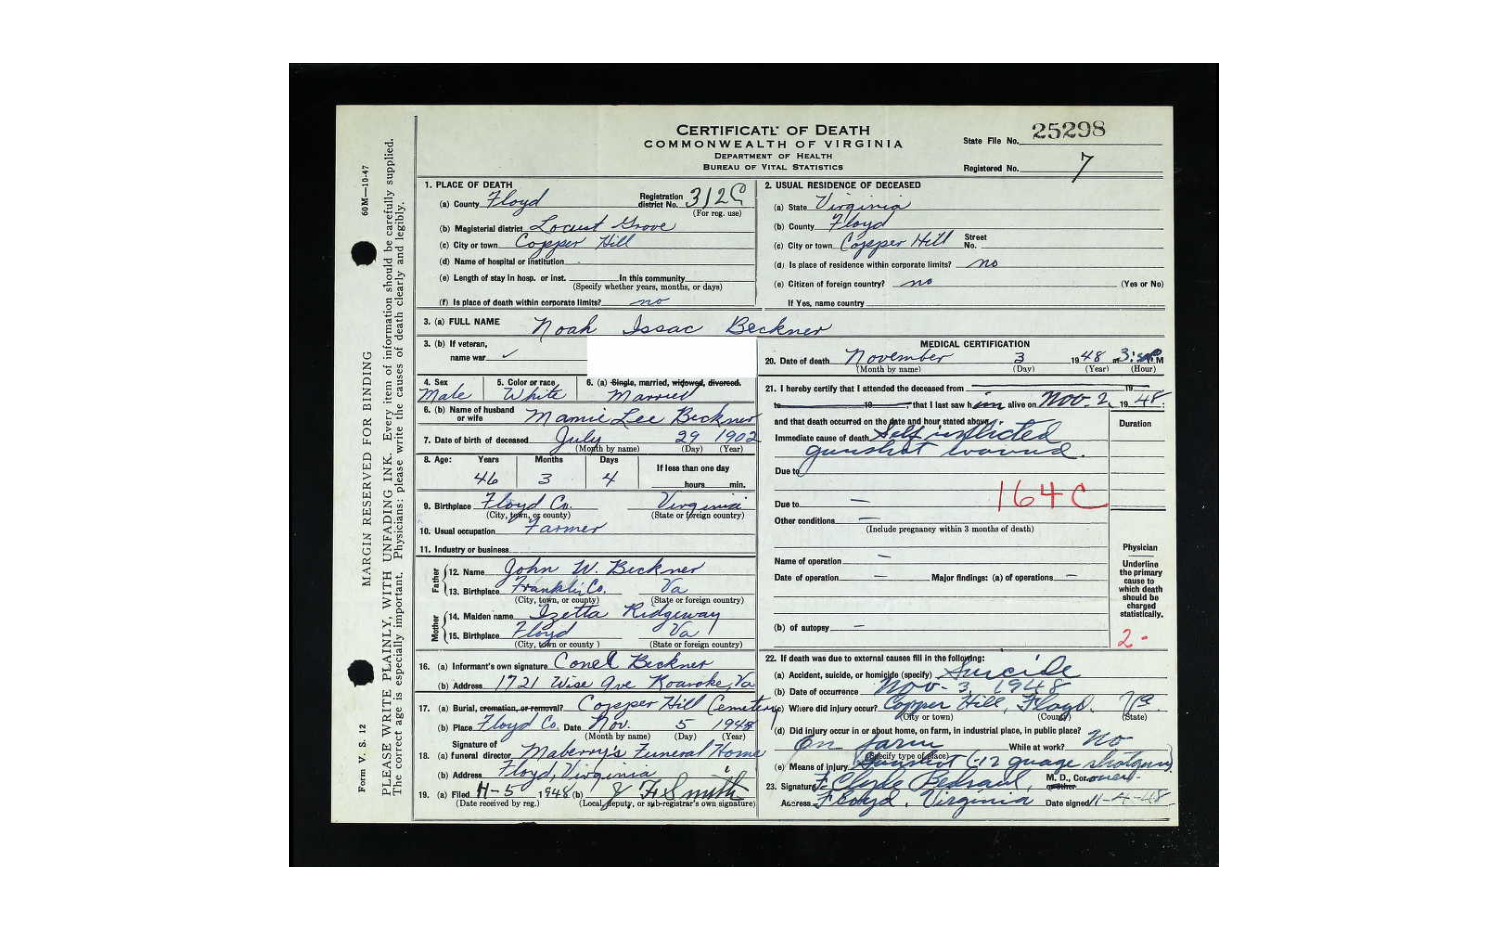 CERTIFICATE OF DEATH
COMMONWEALTH OF VIRGINIA
DEPARTMENT OF HEALTH
BUREAU OF VITAL STATISTICS
State File No. 25298
Registered No. 7
60M—10-47
MARGIN RESERVED FOR BINDING
Form V. S. 12
PLEASE WRITE PLAINLY, WITH UNFADING INK. Every item of information should be carefully supplied.
The correct age is especially important. Physicians: please write the causes of death clearly and legibly.
1. PLACE OF DEATH
(a) County Floyd Registration district No. 312C
(For reg. use)
(b) Magisterial district Locust Grove
(c) City or town Copper Hill
(d) Name of hospital or institution
(e) Length of stay in hosp. or inst. In this community
(Specify whether years, months, or days)
(f) Is place of death within corporate limits? no
2. USUAL RESIDENCE OF DECEASED
(a) State Virginia
(b) County Floyd
(c) City or town Copper Hill Street No.
(d) Is place of residence within corporate limits? no
(e) Citizen of foreign country? no (Yes or No)
If Yes, name country
3. (a) FULL NAME Noah Issac Beckner
3. (b) If veteran,
name war ✓
4. Sex Male
5. Color or race White
6. (a) Single, married, widowed, divorced. Married
6. (b) Name of husband or wife Mamie Lee Beckner
7. Date of birth of deceased July 29 1902
(Month by name) (Day) (Year)
8. Age: Years Months Days If less than one day
46 3 4 hours min.
9. Birthplace Floyd Co. Virginia
(City, town, or county) (State or foreign country)
10. Usual occupation Farmer
11. Industry or business
Father
12. Name John W. Beckner
13. Birthplace Franklin Co. Va
(City, town, or county) (State or foreign country)
Mother
14. Maiden name Izetta Ridgeway
15. Birthplace Floyd Va
(City, town or county) (State or foreign country)
16. (a) Informant's own signature Conel Beckner
(b) Address 1721 Wise Ave Roanoke, Va
17. (a) Burial, cremation, or removal? Copper Hill Cemetery
(b) Place Floyd Co. Date Nov. 5 1948
(Month by name) (Day) (Year)
Signature of
18. (a) funeral director Maberry's Funeral Home
(b) Address Floyd, Virginia
19. (a) Filed 11-5 1948 (b) J H Smith
(Date received by reg.) (Local, deputy, or sub-registrar's own signature)
MEDICAL CERTIFICATION
20. Date of death November 3 1948 at 3: M
(Month by name) (Day) (Year) (Hour)
21. I hereby certify that I attended the deceased from 19
to 19 , that I last saw him alive on Nov. 2, 1948
and that death occurred on the date and hour stated above.
Duration
Immediate cause of death Self inflicted
gunshot wound.
Due to
Due to — 164C
Other conditions —
(Include pregnancy within 3 months of death)
Name of operation —
Date of operation — Major findings: (a) of operations —
(b) of autopsy —
Physician
Underline
the primary
cause to
which death
should be
charged
statistically.
2-
22. If death was due to external causes fill in the following:
(a) Accident, suicide, or homicide (specify) Suicide
(b) Date of occurrence Nov-3, 1948
(c) Where did injury occur? Copper Hill, Floyd. Va.
(City or town) (County) (State)
(d) Did injury occur in or about home, on farm, in industrial place, in public place?
On farm While at work? No
(Specify type of place)
(e) Means of injury Gunshot (-12 guage shotgun)
23. Signature F. Clyde Bedsaul, M. D., Coroner.
Address Floyd, Virginia Date signed 11-4-48